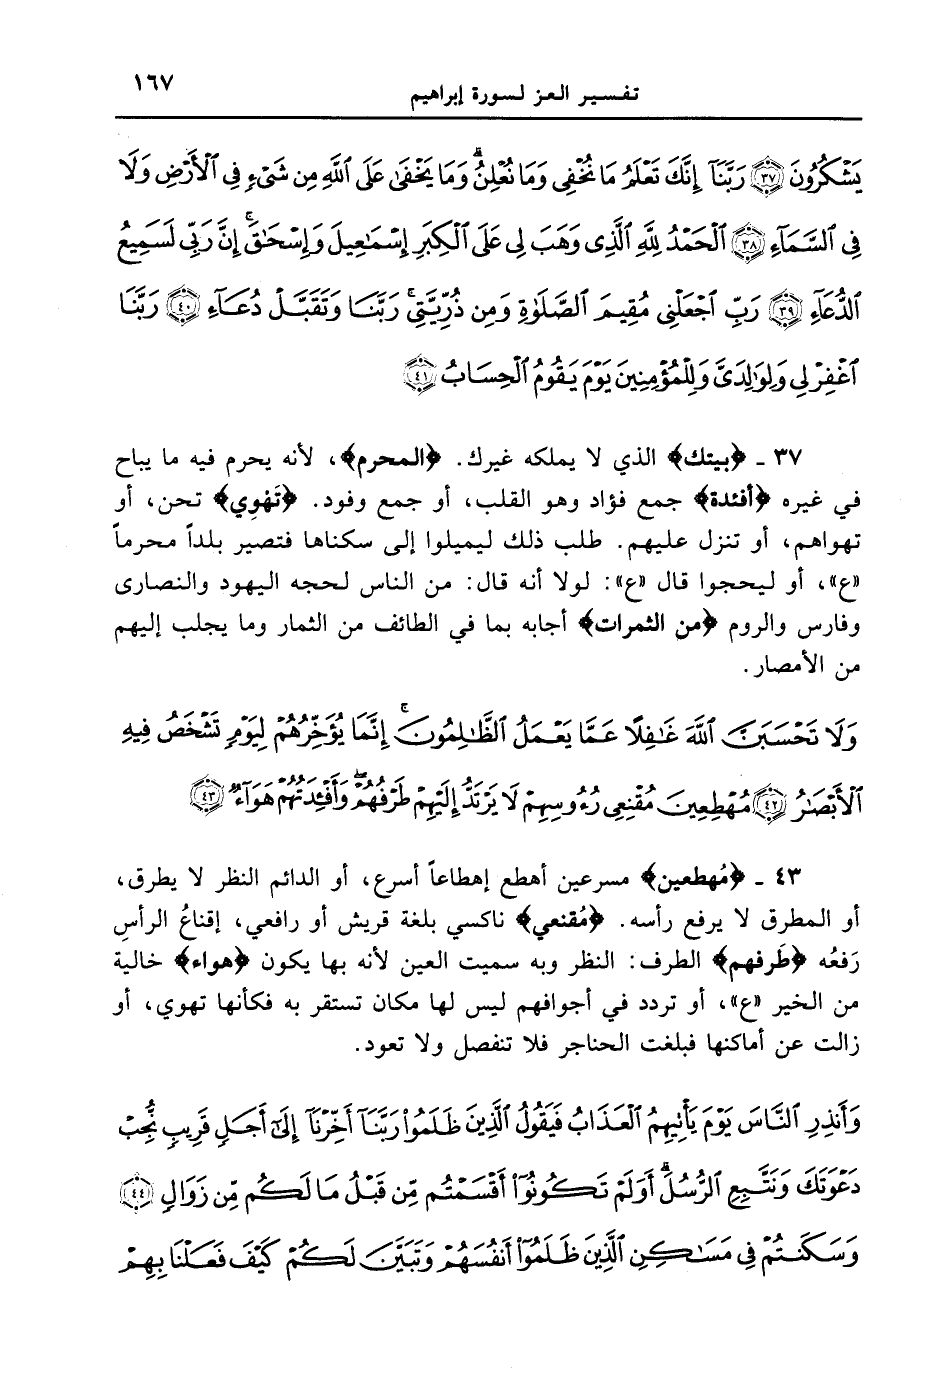 تفسير العز لسورة إبراهيم
١٦٧
يَشْكُرُونَ ﴿٣٧﴾ رَبَّنَآ إِنَّكَ تَعْلَمُ مَا نُخْفِى وَمَا نُعْلِنُ ۗ وَمَا يَخْفَىٰ عَلَى ٱللَّهِ مِن شَىْءٍ فِى ٱلْأَرْضِ وَلَا
فِى ٱلسَّمَآءِ ﴿٣٨﴾ ٱلْحَمْدُ لِلَّهِ ٱلَّذِى وَهَبَ لِى عَلَى ٱلْكِبَرِ إِسْمَٰعِيلَ وَإِسْحَٰقَ ۚ إِنَّ رَبِّى لَسَمِيعُ
ٱلدُّعَآءِ ﴿٣٩﴾ رَبِّ ٱجْعَلْنِى مُقِيمَ ٱلصَّلَوٰةِ وَمِن ذُرِّيَّتِى ۚ رَبَّنَا وَتَقَبَّلْ دُعَآءِ ﴿٤٠﴾ رَبَّنَا
ٱغْفِرْ لِى وَلِوَٰلِدَىَّ وَلِلْمُؤْمِنِينَ يَوْمَ يَقُومُ ٱلْحِسَابُ ﴿٤١﴾
٣٧ ـ ﴿بيتك﴾ الذي لا يملكه غيرك. ﴿المحرم﴾، لأنه يحرم فيه ما يباح
في غيره ﴿أفئدة﴾ جمع فؤاد وهو القلب، أو جمع وفود. ﴿تَهْوِي﴾ تحن، أو
تهواهم، أو تنزل عليهم. طلب ذلك ليميلوا إلى سكناها فتصير بلداً محرماً
«ع»، أو ليحجوا قال «ع»: لولا أنه قال: من الناس لحجه اليهود والنصارى
وفارس والروم ﴿من الثمرات﴾ أجابه بما في الطائف من الثمار وما يجلب إليهم
من الأمصار.
وَلَا تَحْسَبَنَّ ٱللَّهَ غَٰفِلًا عَمَّا يَعْمَلُ ٱلظَّٰلِمُونَ ۚ إِنَّمَا يُؤَخِّرُهُمْ لِيَوْمٍ تَشْخَصُ فِيهِ
ٱلْأَبْصَٰرُ ﴿٤٢﴾ مُهْطِعِينَ مُقْنِعِى رُءُوسِهِمْ لَا يَرْتَدُّ إِلَيْهِمْ طَرْفُهُمْ ۖ وَأَفْـِٔدَتُهُمْ هَوَآءٌ ﴿٤٣﴾
٤٣ ـ ﴿مُهطعين﴾ مسرعين أهطع إهطاعاً أسرع، أو الدائم النظر لا يطرق،
أو المطرق لا يرفع رأسه. ﴿مُقنعي﴾ ناكسي بلغة قريش أو رافعي، إقناعُ الرأسِ
رَفعُه ﴿طَرفهم﴾ الطرف: النظر وبه سميت العين لأنه بها يكون ﴿هواء﴾ خالية
من الخير «ع»، أو تردد في أجوافهم ليس لها مكان تستقر به فكأنها تهوي، أو
زالت عن أماكنها فبلغت الحناجر فلا تنفصل ولا تعود.
وَأَنذِرِ ٱلنَّاسَ يَوْمَ يَأْتِيهِمُ ٱلْعَذَابُ فَيَقُولُ ٱلَّذِينَ ظَلَمُوا۟ رَبَّنَآ أَخِّرْنَآ إِلَىٰٓ أَجَلٍ قَرِيبٍ نُّجِبْ
دَعْوَتَكَ وَنَتَّبِعِ ٱلرُّسُلَ ۗ أَوَلَمْ تَكُونُوٓا۟ أَقْسَمْتُم مِّن قَبْلُ مَا لَكُم مِّن زَوَالٍ ﴿٤٤﴾
وَسَكَنتُمْ فِى مَسَٰكِنِ ٱلَّذِينَ ظَلَمُوٓا۟ أَنفُسَهُمْ وَتَبَيَّنَ لَكُمْ كَيْفَ فَعَلْنَا بِهِمْ